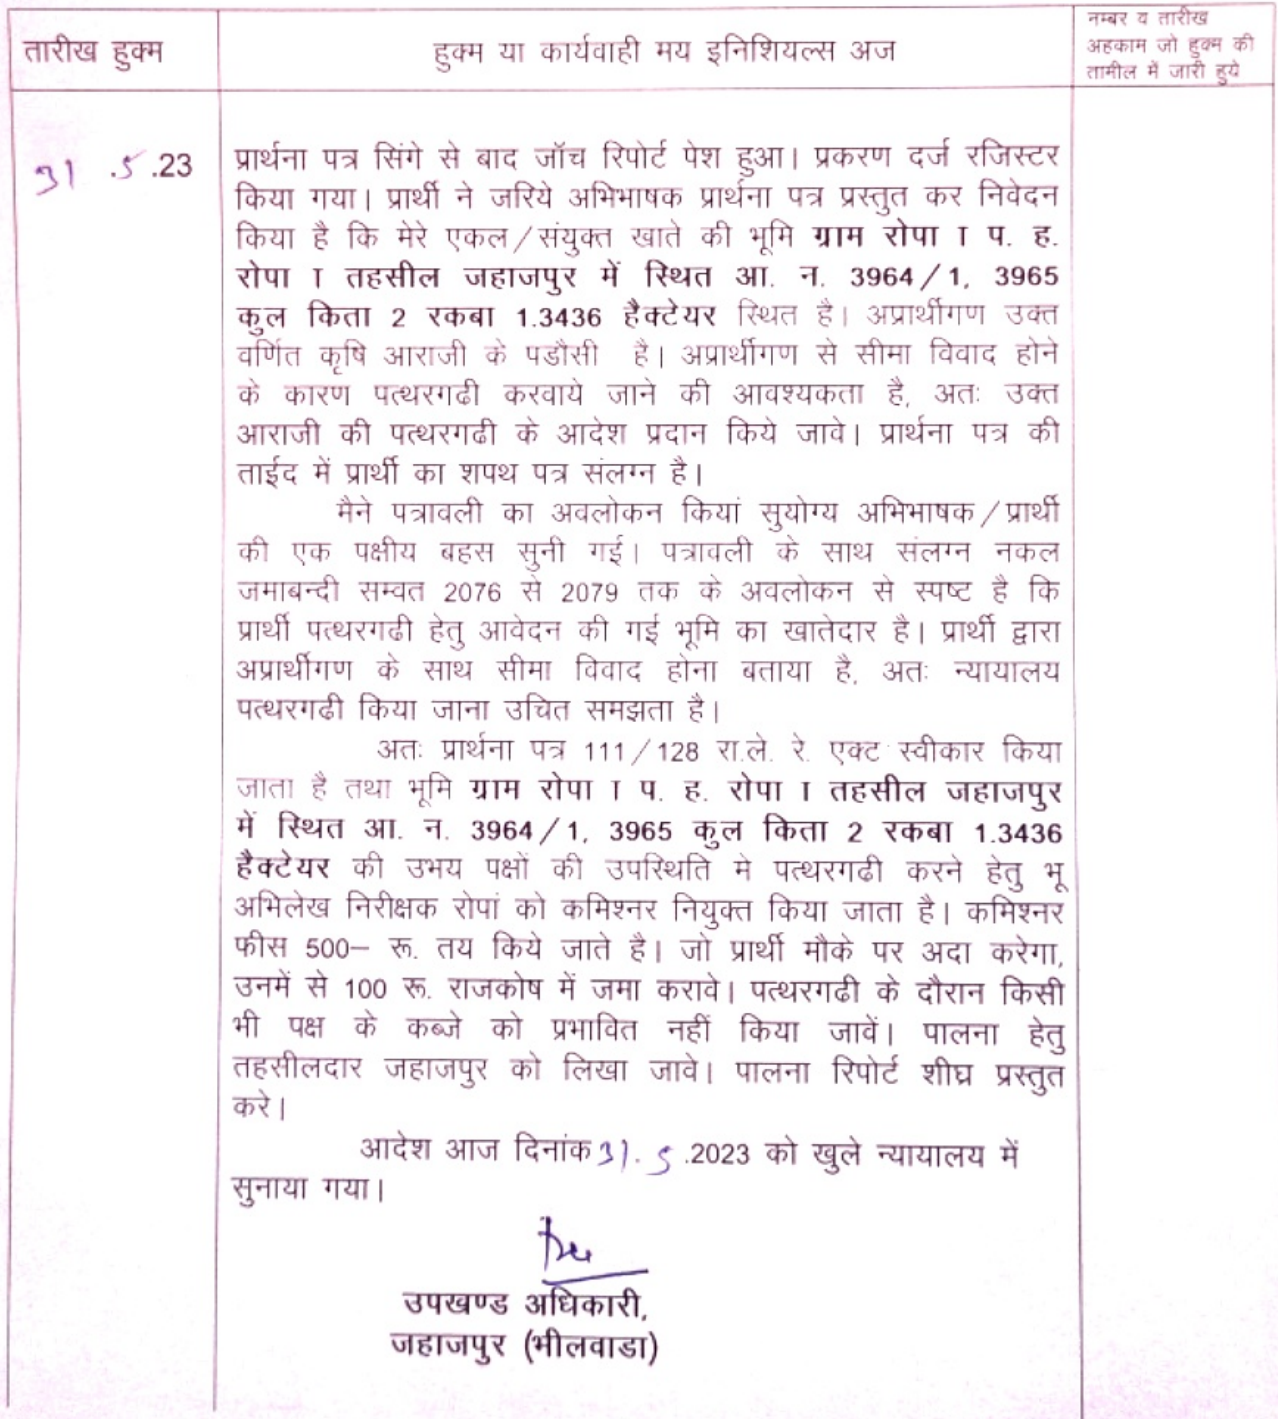 तारीख हुक्म
हुक्म या कार्यवाही मय इनिशियल्स अज
नम्बर व तारीख
अहकाम जो हुक्म की
तामील में जारी हुये
31 .5 .23
प्रार्थना पत्र सिंगे से बाद जॉच रिपोर्ट पेश हुआ। प्रकरण दर्ज रजिस्टर
किया गया। प्रार्थी ने जरिये अभिभाषक प्रार्थना पत्र प्रस्तुत कर निवेदन
किया है कि मेरे एकल/संयुक्त खाते की भूमि ग्राम रोपा I प. ह.
रोपा I तहसील जहाजपुर में स्थित आ. न. 3964/1, 3965
कुल किता 2 रकबा 1.3436 हैक्टेयर स्थित है। अप्रार्थीगण उक्त
वर्णित कृषि आराजी के पडौसी है। अप्रार्थीगण से सीमा विवाद होने
के कारण पत्थरगढी करवाये जाने की आवश्यकता है, अतः उक्त
आराजी की पत्थरगढी के आदेश प्रदान किये जावे। प्रार्थना पत्र की
ताईद में प्रार्थी का शपथ पत्र संलग्न है।
मैने पत्रावली का अवलोकन कियां सुयोग्य अभिभाषक/प्रार्थी
की एक पक्षीय बहस सुनी गई। पत्रावली के साथ संलग्न नकल
जमाबन्दी सम्वत 2076 से 2079 तक के अवलोकन से स्पष्ट है कि
प्रार्थी पत्थरगढी हेतु आवेदन की गई भूमि का खातेदार है। प्रार्थी द्वारा
अप्रार्थीगण के साथ सीमा विवाद होना बताया है, अतः न्यायालय
पत्थरगढी किया जाना उचित समझता है।
अतः प्रार्थना पत्र 111/128 रा.ले. रे. एक्ट स्वीकार किया
जाता है तथा भूमि ग्राम रोपा I प. ह. रोपा I तहसील जहाजपुर
में स्थित आ. न. 3964/1, 3965 कुल किता 2 रकबा 1.3436
हैक्टेयर की उभय पक्षों की उपस्थिति मे पत्थरगढी करने हेतु भू
अभिलेख निरीक्षक रोपां को कमिश्नर नियुक्त किया जाता है। कमिश्नर
फीस 500– रू. तय किये जाते है। जो प्रार्थी मौके पर अदा करेगा,
उनमें से 100 रू. राजकोष में जमा करावे। पत्थरगढी के दौरान किसी
भी पक्ष के कब्जे को प्रभावित नहीं किया जावें। पालना हेतु
तहसीलदार जहाजपुर को लिखा जावे। पालना रिपोर्ट शीघ्र प्रस्तुत
करे।
आदेश आज दिनांक 31. 5 .2023 को खुले न्यायालय में
सुनाया गया।
उपखण्ड अधिकारी,
जहाजपुर (भीलवाडा)